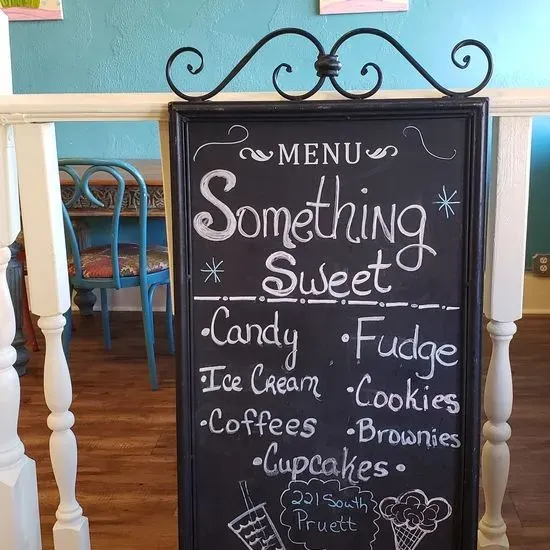 MENU
Something
Sweet
•Candy •Fudge
•Ice Cream •Cookies
•Coffees •Brownies
•Cupcakes•
221 South
Pruett